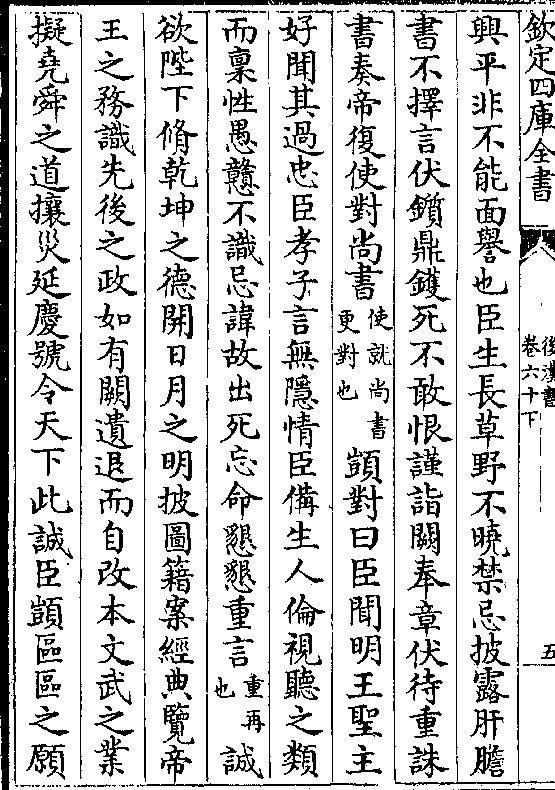 欽定四庫全書
後漢書
卷六十下
五
興平非不能面譽也臣生長草野不曉禁忌披露肝膽
書不擇言伏鑕鼎鑊死不敢恨謹詣闕奉章伏待重誅
書奏帝復使對尚書使就尚書更對也顗對曰臣聞明王聖主
好聞其過忠臣孝子言無隱情臣備生人倫視聽之類
而稟性愚戇不識忌諱故出死忘命懇懇重言重再也誠
欲陛下脩乾坤之德開日月之明披圖籍案經典覽帝
王之務識先後之政如有闕遺退而自改本文武之業
擬堯舜之道攘災延慶號令天下此誠臣顗區區之願